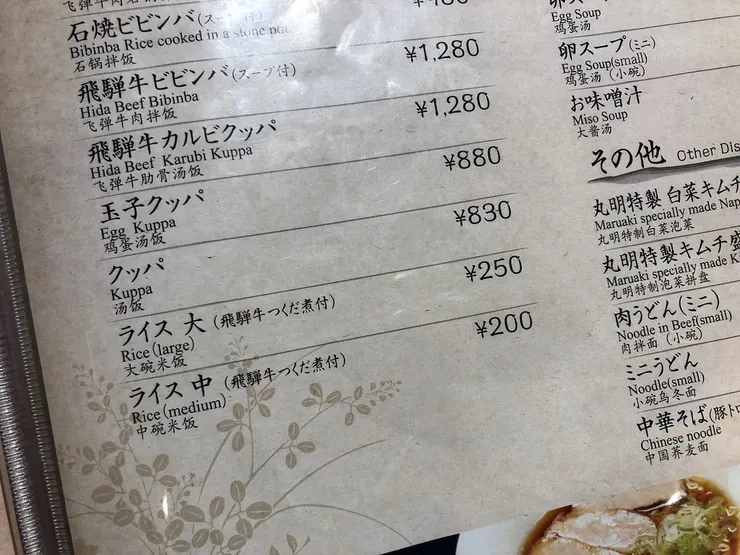 飛騨牛
飞弹牛肉石
石焼ビビンバ(スープ付)
Bibinba Rice cooked in a stone pot
石锅拌饭
¥1,280
飛騨牛ビビンバ(スープ付)
Hida Beef Bibinba
飞弹牛肉拌饭
¥1,280
飛騨牛カルビクッパ
Hida Beef Karubi Kuppa
飞弹牛肋骨汤饭
¥880
玉子クッパ
Egg Kuppa
鸡蛋汤饭
¥830
クッパ
Kuppa
汤饭
¥250
ライス 大 (飛騨牛つくだ煮付)
Rice(large)
大碗米饭
¥200
ライス 中 (飛騨牛つくだ煮付)
Rice(medium)
中碗米饭
卵スープ
Egg Soup
鸡蛋汤
卵スープ(ミニ)
Egg Soup(small)
鸡蛋汤 (小碗)
お味噌汁
Miso Soup
大酱汤
その他 Other
丸明特製 白菜キムチ
Maruaki specially made
丸明特制白菜泡菜
丸明特製キムチ盛
Maruaki specially made
丸明特制泡菜拼盘
肉うどん(ミニ)
Noodle in Beef(small)
肉拌面 (小碗)
ミニうどん
Noodle(small)
小碗乌冬面
中華そば(豚トロ
Chinese noodle
中国荞麦面